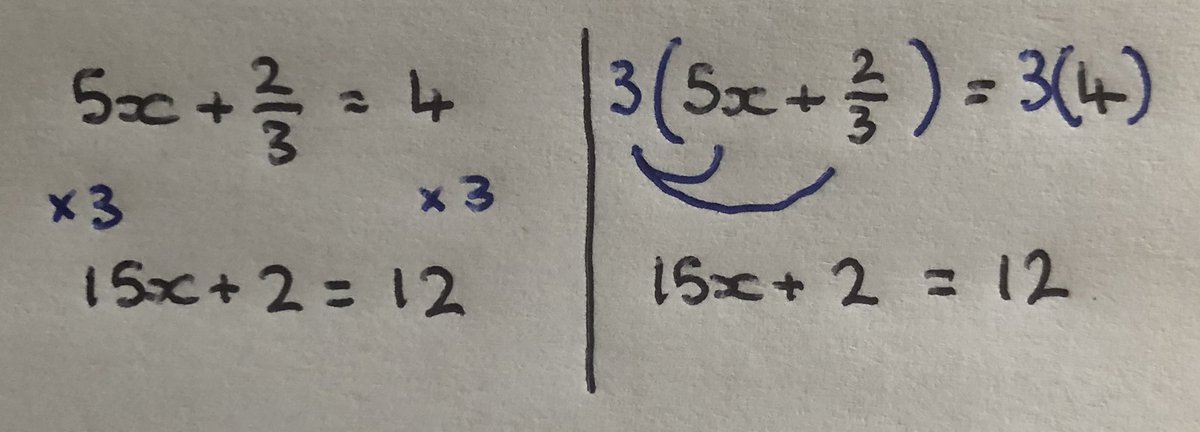 5x + 2/3 = 4
×3 ×3
15x + 2 = 12
3(5x + 2/3) = 3(4)
15x + 2 = 12